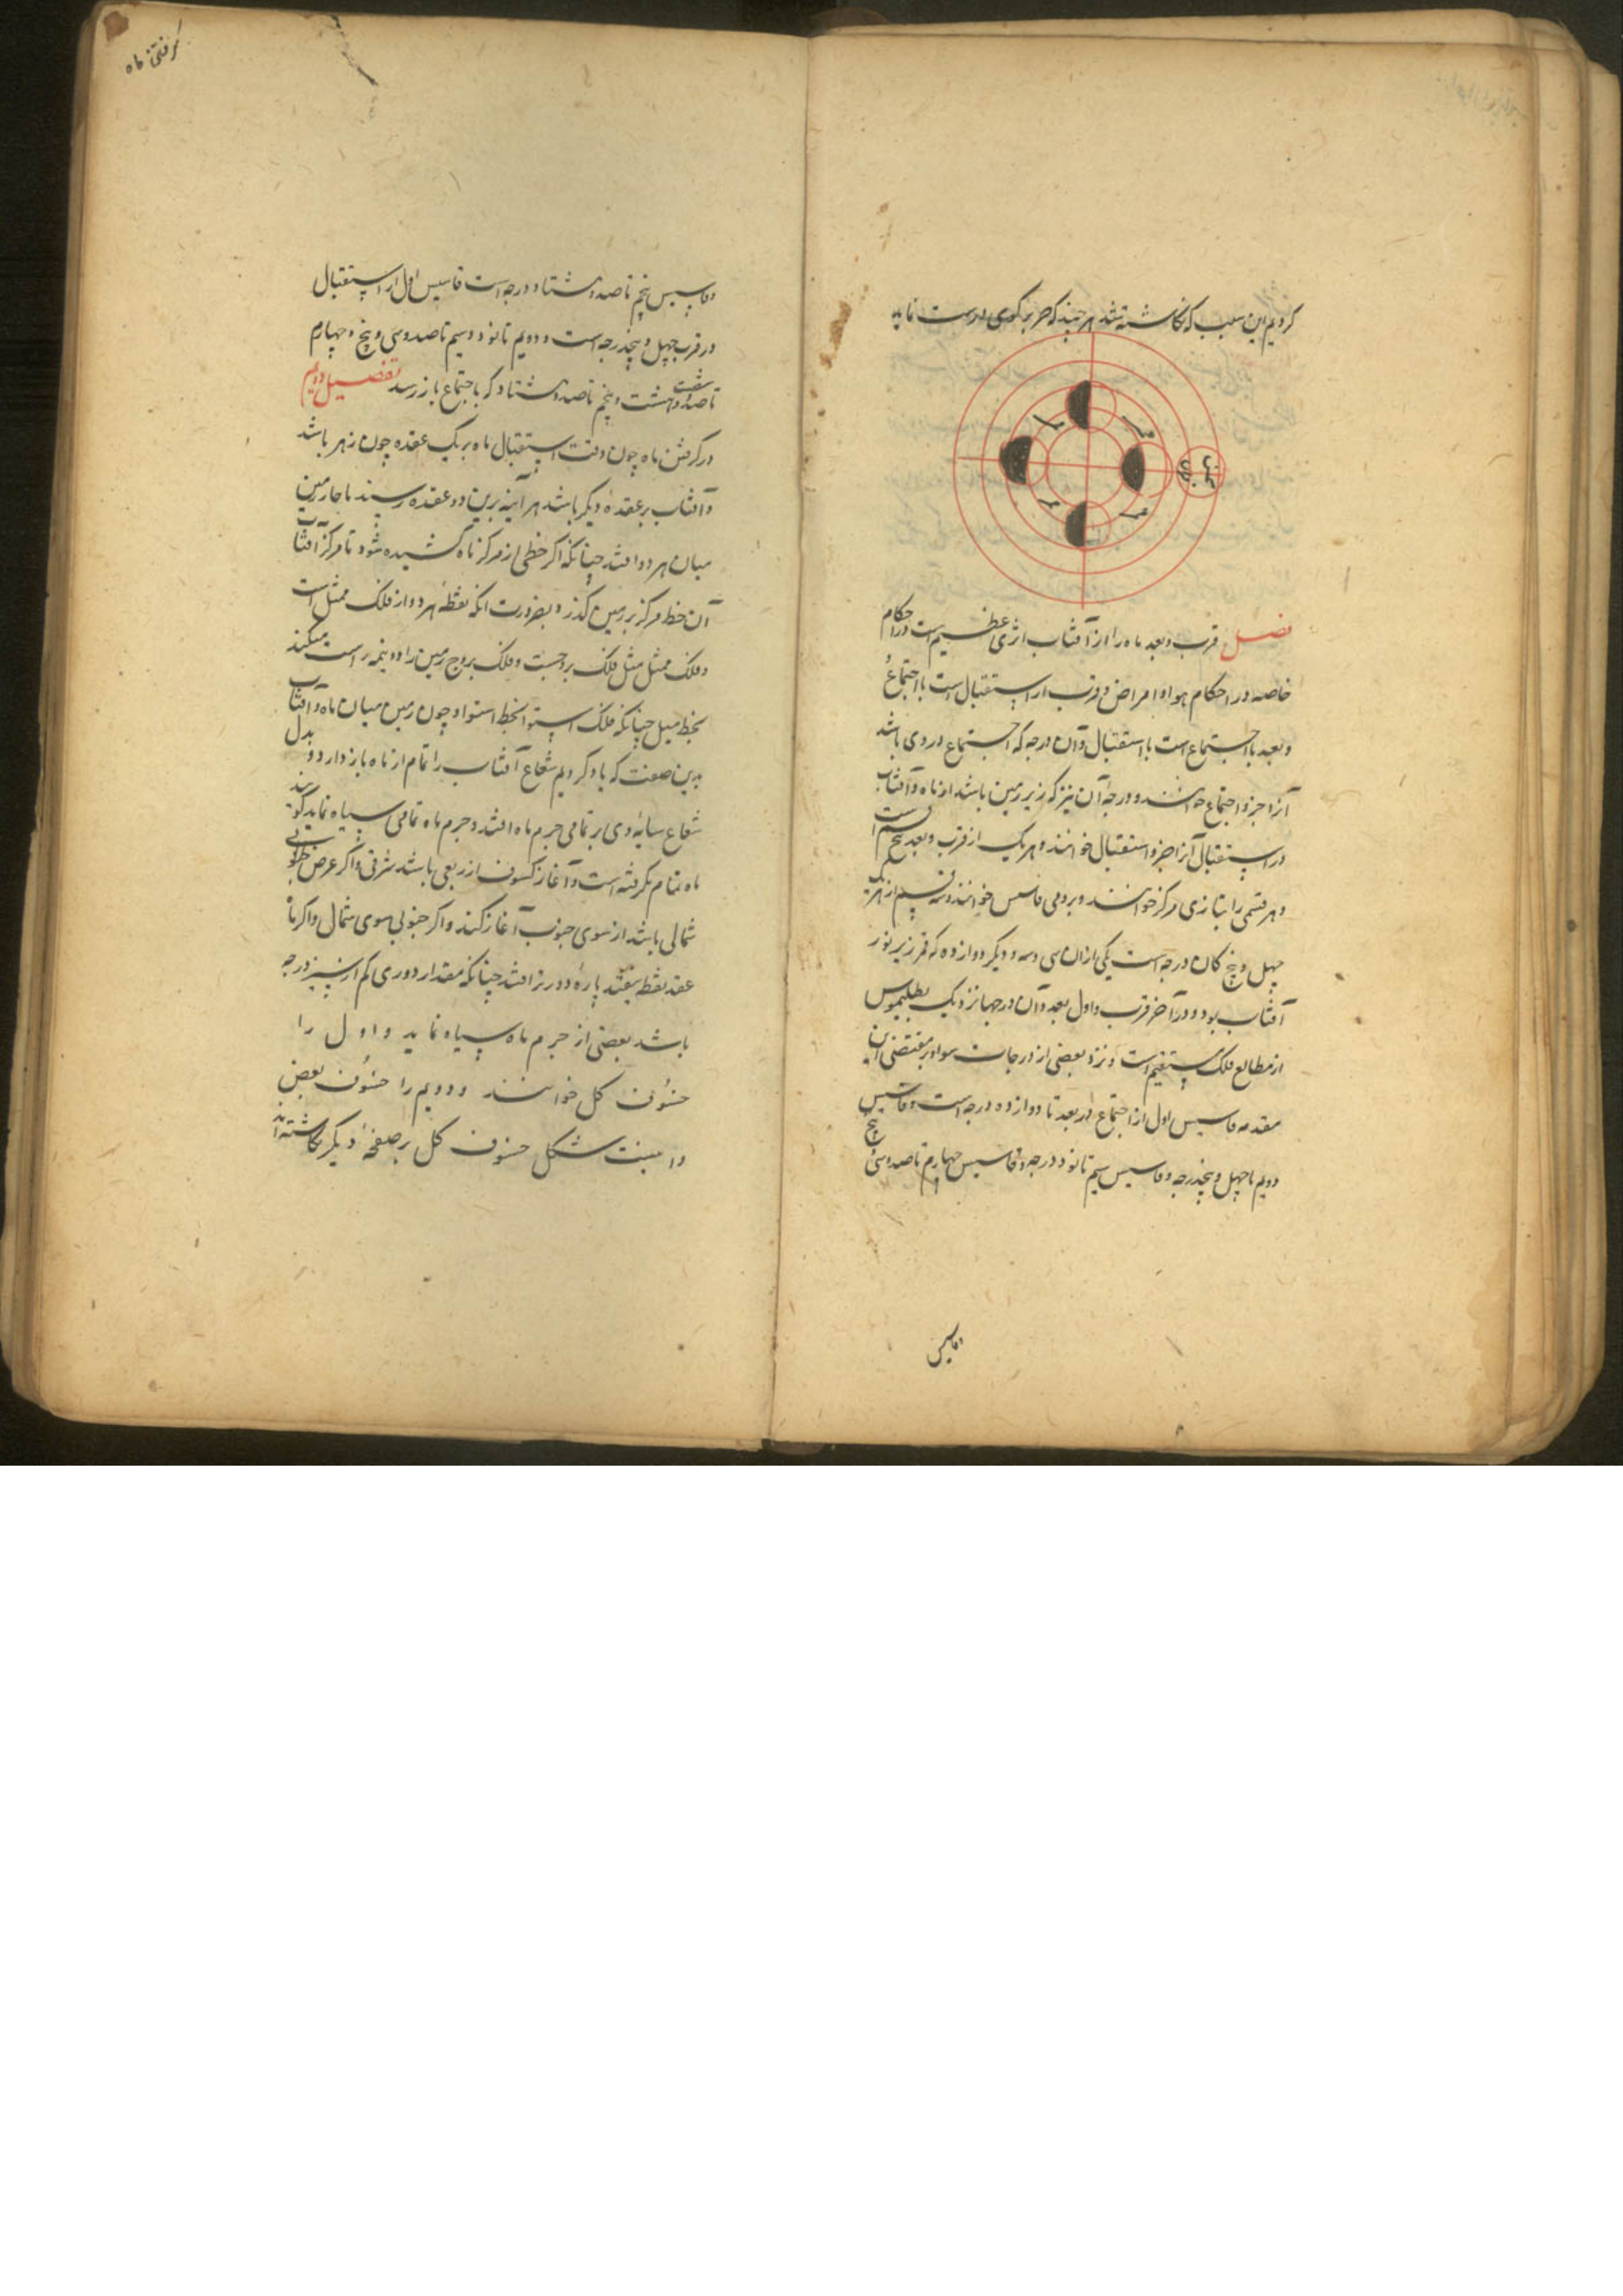 کردیم این سبب که نکاشته شد هر چند که جز بر کوی درست نماید
فصل قرب و بعد ماه را از آفتاب اثری عظیم است در احکام
خاصه در احکام هوا و امراض و قرب از استقبال است با اجتماع
و بعد با اجتماع است با استقبال و آن درجه که اجتماع در وی باشد
آنرا جزو اجتماع خوانند و درجهٔ آن نیز که زیر زمین باشد از ماه و آفتاب
در استقبال آنرا جزو استقبال خوانند و هر یک از قرب و بعد پنج قسم است
و هر قسمی را بتازی مرکز خوانند و برومی فاسیس خوانند و سه قسم از هر یک
چهل و پنج کان درجه است یکی ازان سی و سه و دیگر دوازده که قمر زیر نور
آفتاب بود و در آخر قرب و اول بعد و آن درجها نزدیک بطلیموس
از مطالع فلک مستقیم است و نزد بعضی از درجات سوا و بر مقتضی این
مقدمه فاسیس اول از اجتماع در بعد تا دوازده درجه است و فاسیس
دویم تا چهل و پنجدرجه و فاسیس سیم تا نود درجه و فاسیس چهارم تا صد و سی و پنج
و فاسیس
کرفتن ماه
و فاسیس پنجم تا صد و هشتاد درجه است فاسیس اول از استقبال
در قرب چهل و پنجدرجه است و دویم تا نود و سیم تا صد و سی و پنج و چهارم
تا صد و شصت و هشت و پنجم تا صد و هشتاد که با جتماع باز رسد تفصیل دویم
در کرفتن ماه چون وقت استقبال ماه بر یک عقده چون زهر باشد
و آفتاب بر عقدهٔ دیگر باشد هر آینه برین دو عقده رسیند ناچار زمین
میان هر دو افتد چنانکه اکر خطی از مرکز ماه کشیده شود تا مرکز آفتاب
آن خط بر مرکز زمین کذرد بضرورت انکه نقطهٔ هر دو از فلک ممثل است
و فلک ممثل مثل فلک بروجست و فلک بروج زمین را دو نیمه راست میکند
بخط میل چنانکه فلک استوا بخط استوا و چون زمین میان ماه و آفتاب
بدین صفت که یاد کردیم شعاع آفتاب را تمام از ماه باز دارد و بدل
شعاع سایهٔ وی بر تمامی جرم ماه افتد و جرم ماه تمامی سیاه نماید کویند
ماه تمام بکرفته است و آغاز کسوف از ربعی باشد شرقی و اکر عرض جنوبی
شمالی باشد از سوی جنوب آغاز کند و اکر جنوبی سوی شمال و اکر ماه
عقد نقطه نیفتد پارهٔ دورتر افتد چنانکه مقدار دوری کم از سیزدرجه
باشد بعضی از جرم ماه سیاه نماید و اول را
خسوف کل خوانند و دویم را خسوف بعض
و اینست شکل خسوف کل بر صفحهٔ دیکر نکاشته آید